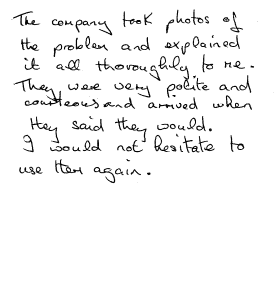 The company took photos of
the problem and explained
it all thoroughly to me.
They were very polite and
courteous and arrived when
they said they would.
I would not hesitate to
use them again.